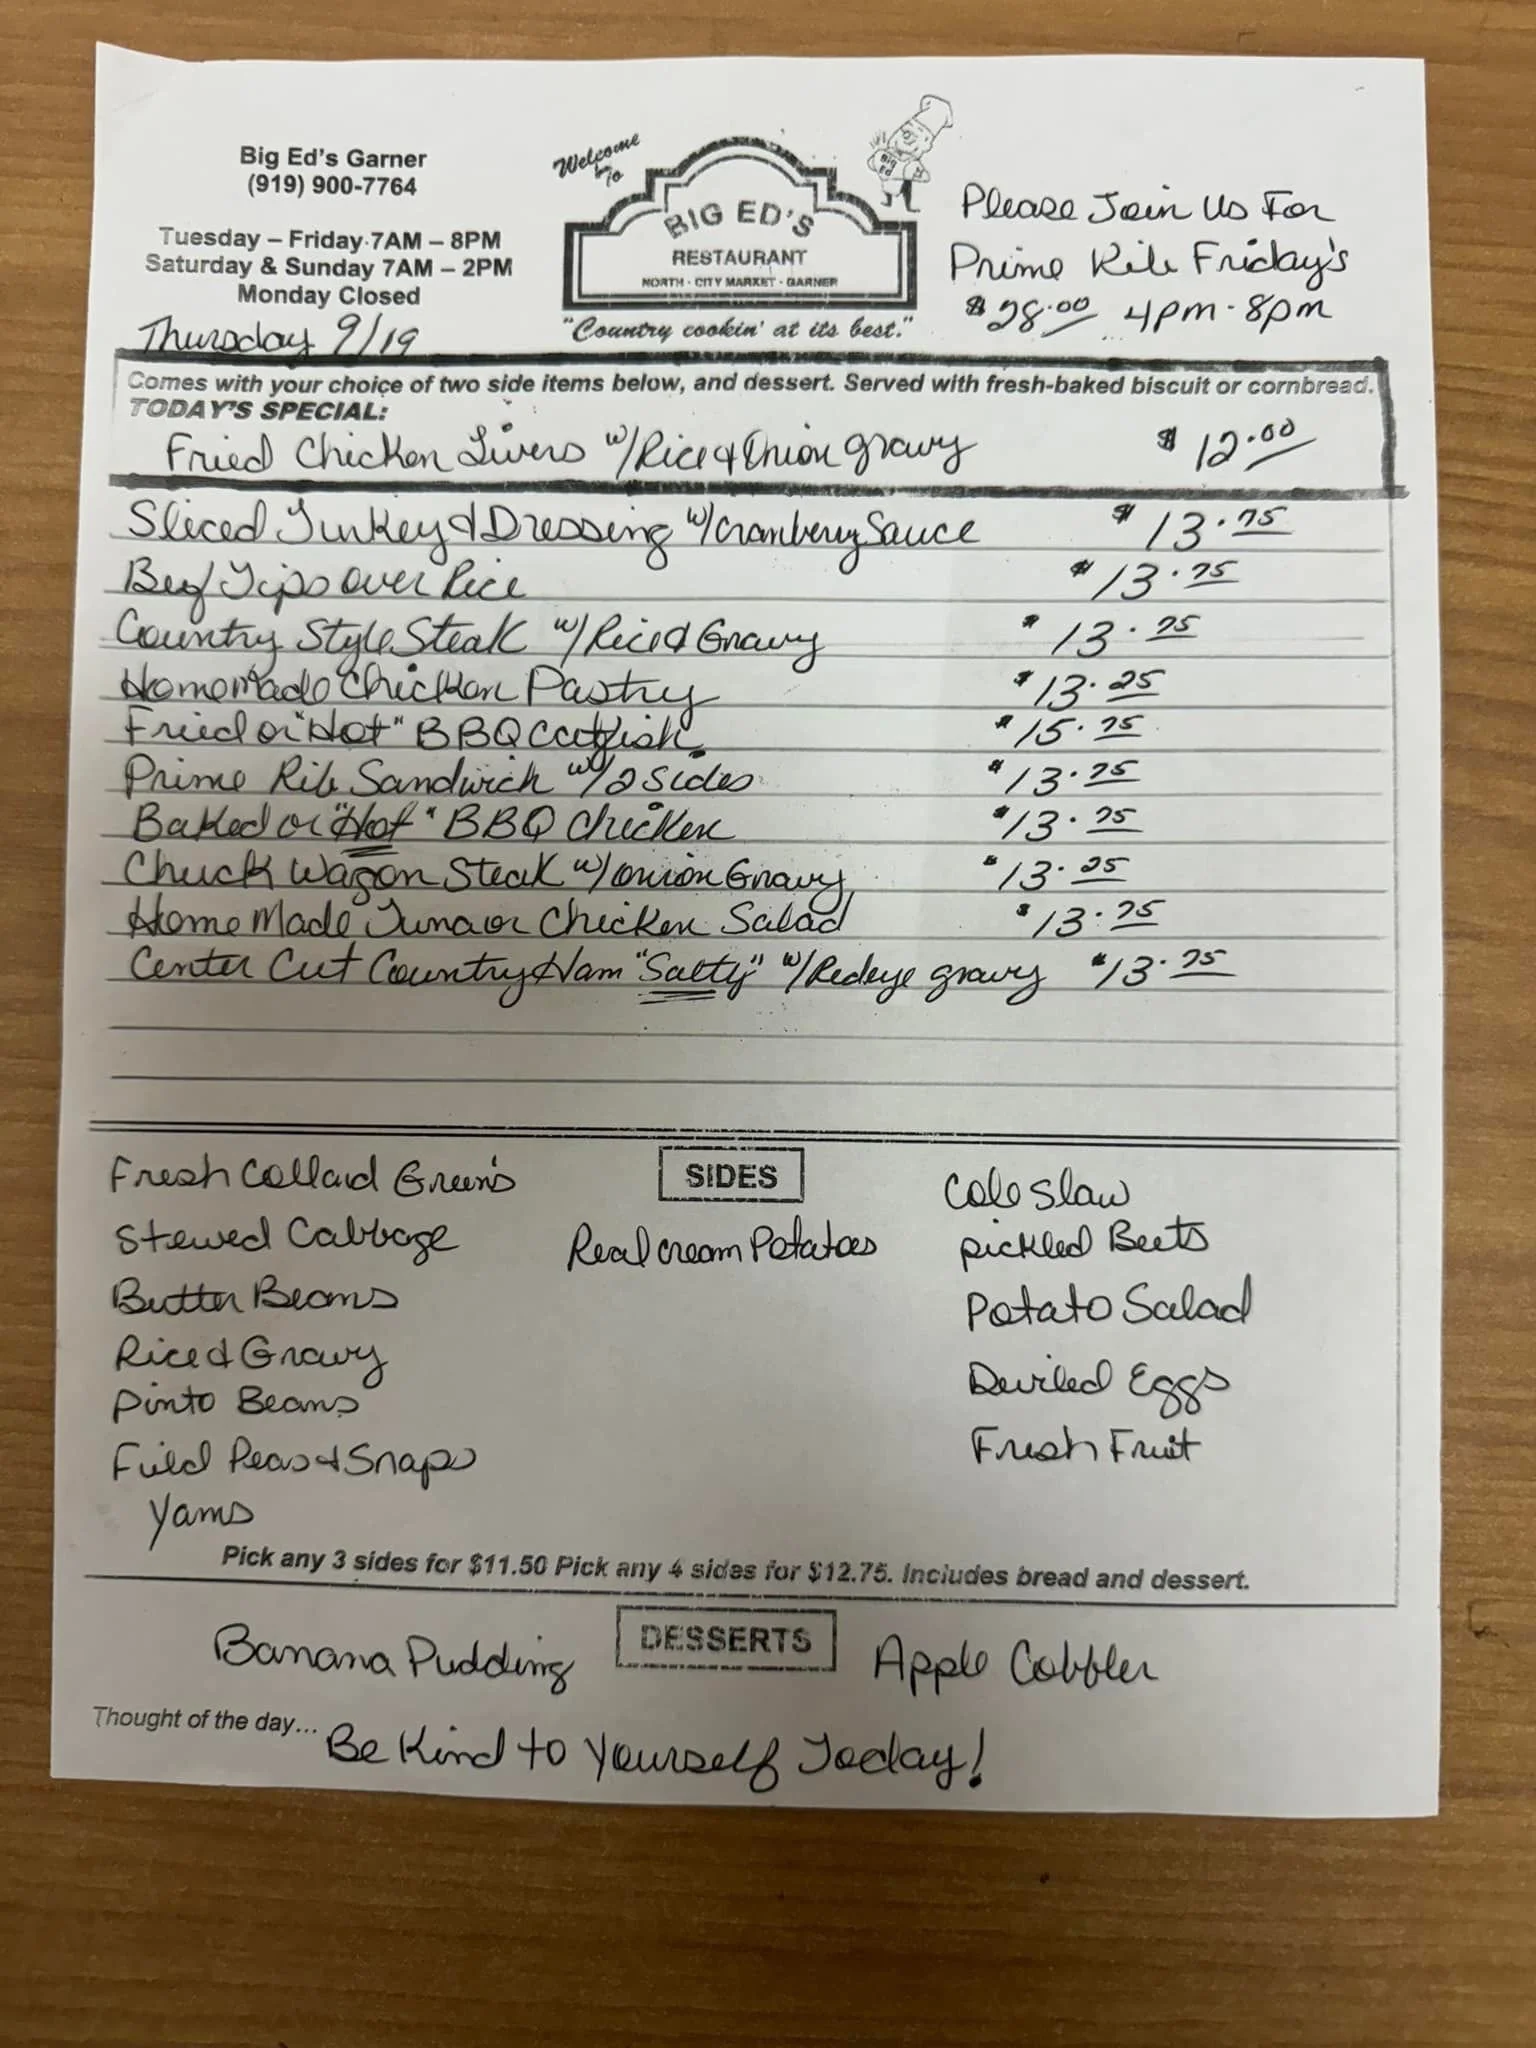 Big Ed's Garner
(919) 900-7764
Tuesday – Friday 7AM – 8PM
Saturday & Sunday 7AM – 2PM
Monday Closed
Thursday 9/19
Welcome
To
BIG ED'S
RESTAURANT
NORTH · CITY MARKET · GARNER
"Country cookin' at its best."
Big
Ed
Please Join Us For
Prime Rib Friday's
$28.00 4pm-8pm
Comes with your choice of two side items below, and dessert. Served with fresh-baked biscuit or cornbread.
TODAY'S SPECIAL:
Fried Chicken Livers w/Rice & Onion gravy $12.00
Sliced Turkey & Dressing w/Cranberry Sauce $13.75
Beef Tips over Rice $13.75
Country Style Steak w/Rice & Gravy $13.75
Homemade Chicken Pastry $13.25
Fried or "Hot" BBQ Catfish $15.75
Prime Rib Sandwich w/2 Sides $13.75
Baked or "Hot" BBQ Chicken $13.75
Chuck Wagon Steak w/onion Gravy $13.25
Home Made Tuna or Chicken Salad $13.75
Center Cut Country Ham "Salty" w/Redeye gravy $13.75
SIDES
Fresh Collard Green's
Stewed Cabbage
Butter Beans
Rice & Gravy
Pinto Beans
Field Peas & Snaps
Yams
Real cream Potatoes
Cole Slaw
pickled Beets
Potato Salad
Deviled Eggs
Fresh Fruit
Pick any 3 sides for $11.50 Pick any 4 sides for $12.75. Includes bread and dessert.
DESSERTS
Banana Pudding
Apple Cobbler
Thought of the day... Be Kind to Yourself Today!